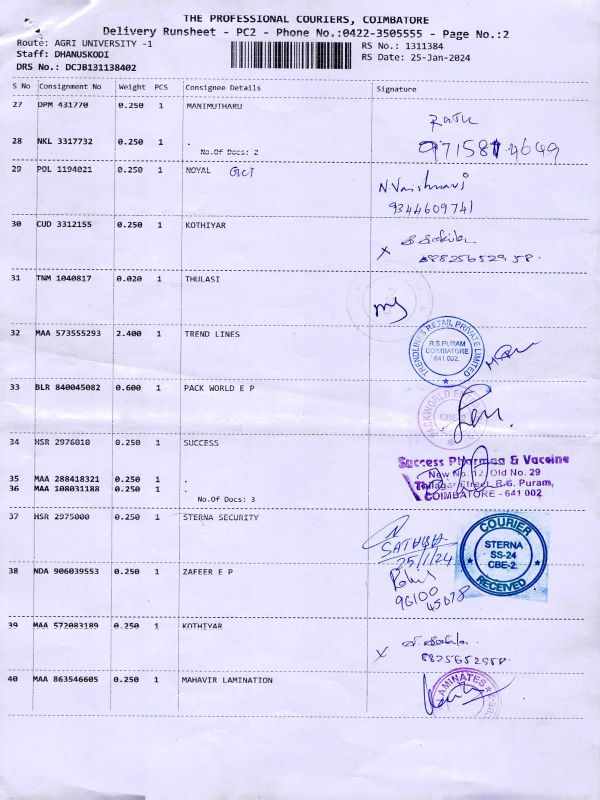 THE PROFESSIONAL COURIERS, COIMBATORE
Delivery Runsheet - PC2 - Phone No.:0422-3505555 - Page No.:2
Route: AGRI UNIVERSITY -1
RS No.: 1311384
Staff: DHANUSKODI
RS Date: 25-Jan-2024
DRS No.: DCJB131138402
S No Consignment No Weight PCS Consignee Details Signature
27 DPM 431770 0.250 1 MANIMUTHARU
28 NKL 3317732 0.250 1 .
No.Of Docs: 2
29 POL 1194021 0.250 1 NOYAL GCT
N Vaishnavi
9344609741
30 CUD 3312155 0.250 1 KOTHIYAR
x
31 TNM 1040817 0.020 1 THULASI
32 MAA 573555293 2.400 1 TREND LINES
TRENDLINES RETAIL PRIVATE LIMITED
R.S.PURAM
COIMBATORE
641 002.
33 BLR 840045082 0.600 1 PACK WORLD E P
34 HSR 2976010 0.250 1 SUCCESS
Success Pharmaa & Vaccine
New No. 12, Old No. 29
Thilagar Street, R.S. Puram,
COIMBATORE - 641 002
35 MAA 288418321 0.250 1 .
36 MAA 108031188 0.250 1 .
No.Of Docs: 3
37 HSR 2975000 0.250 1 STERNA SECURITY
25/1/24
COURIER
STERNA
SS-24
CBE-2.
RECEIVED
38 NDA 906039553 0.250 1 ZAFEER E P
96100
45678
39 MAA 572083189 0.250 1 KOTHIYAR
x
40 MAA 863546605 0.250 1 MAHAVIR LAMINATION